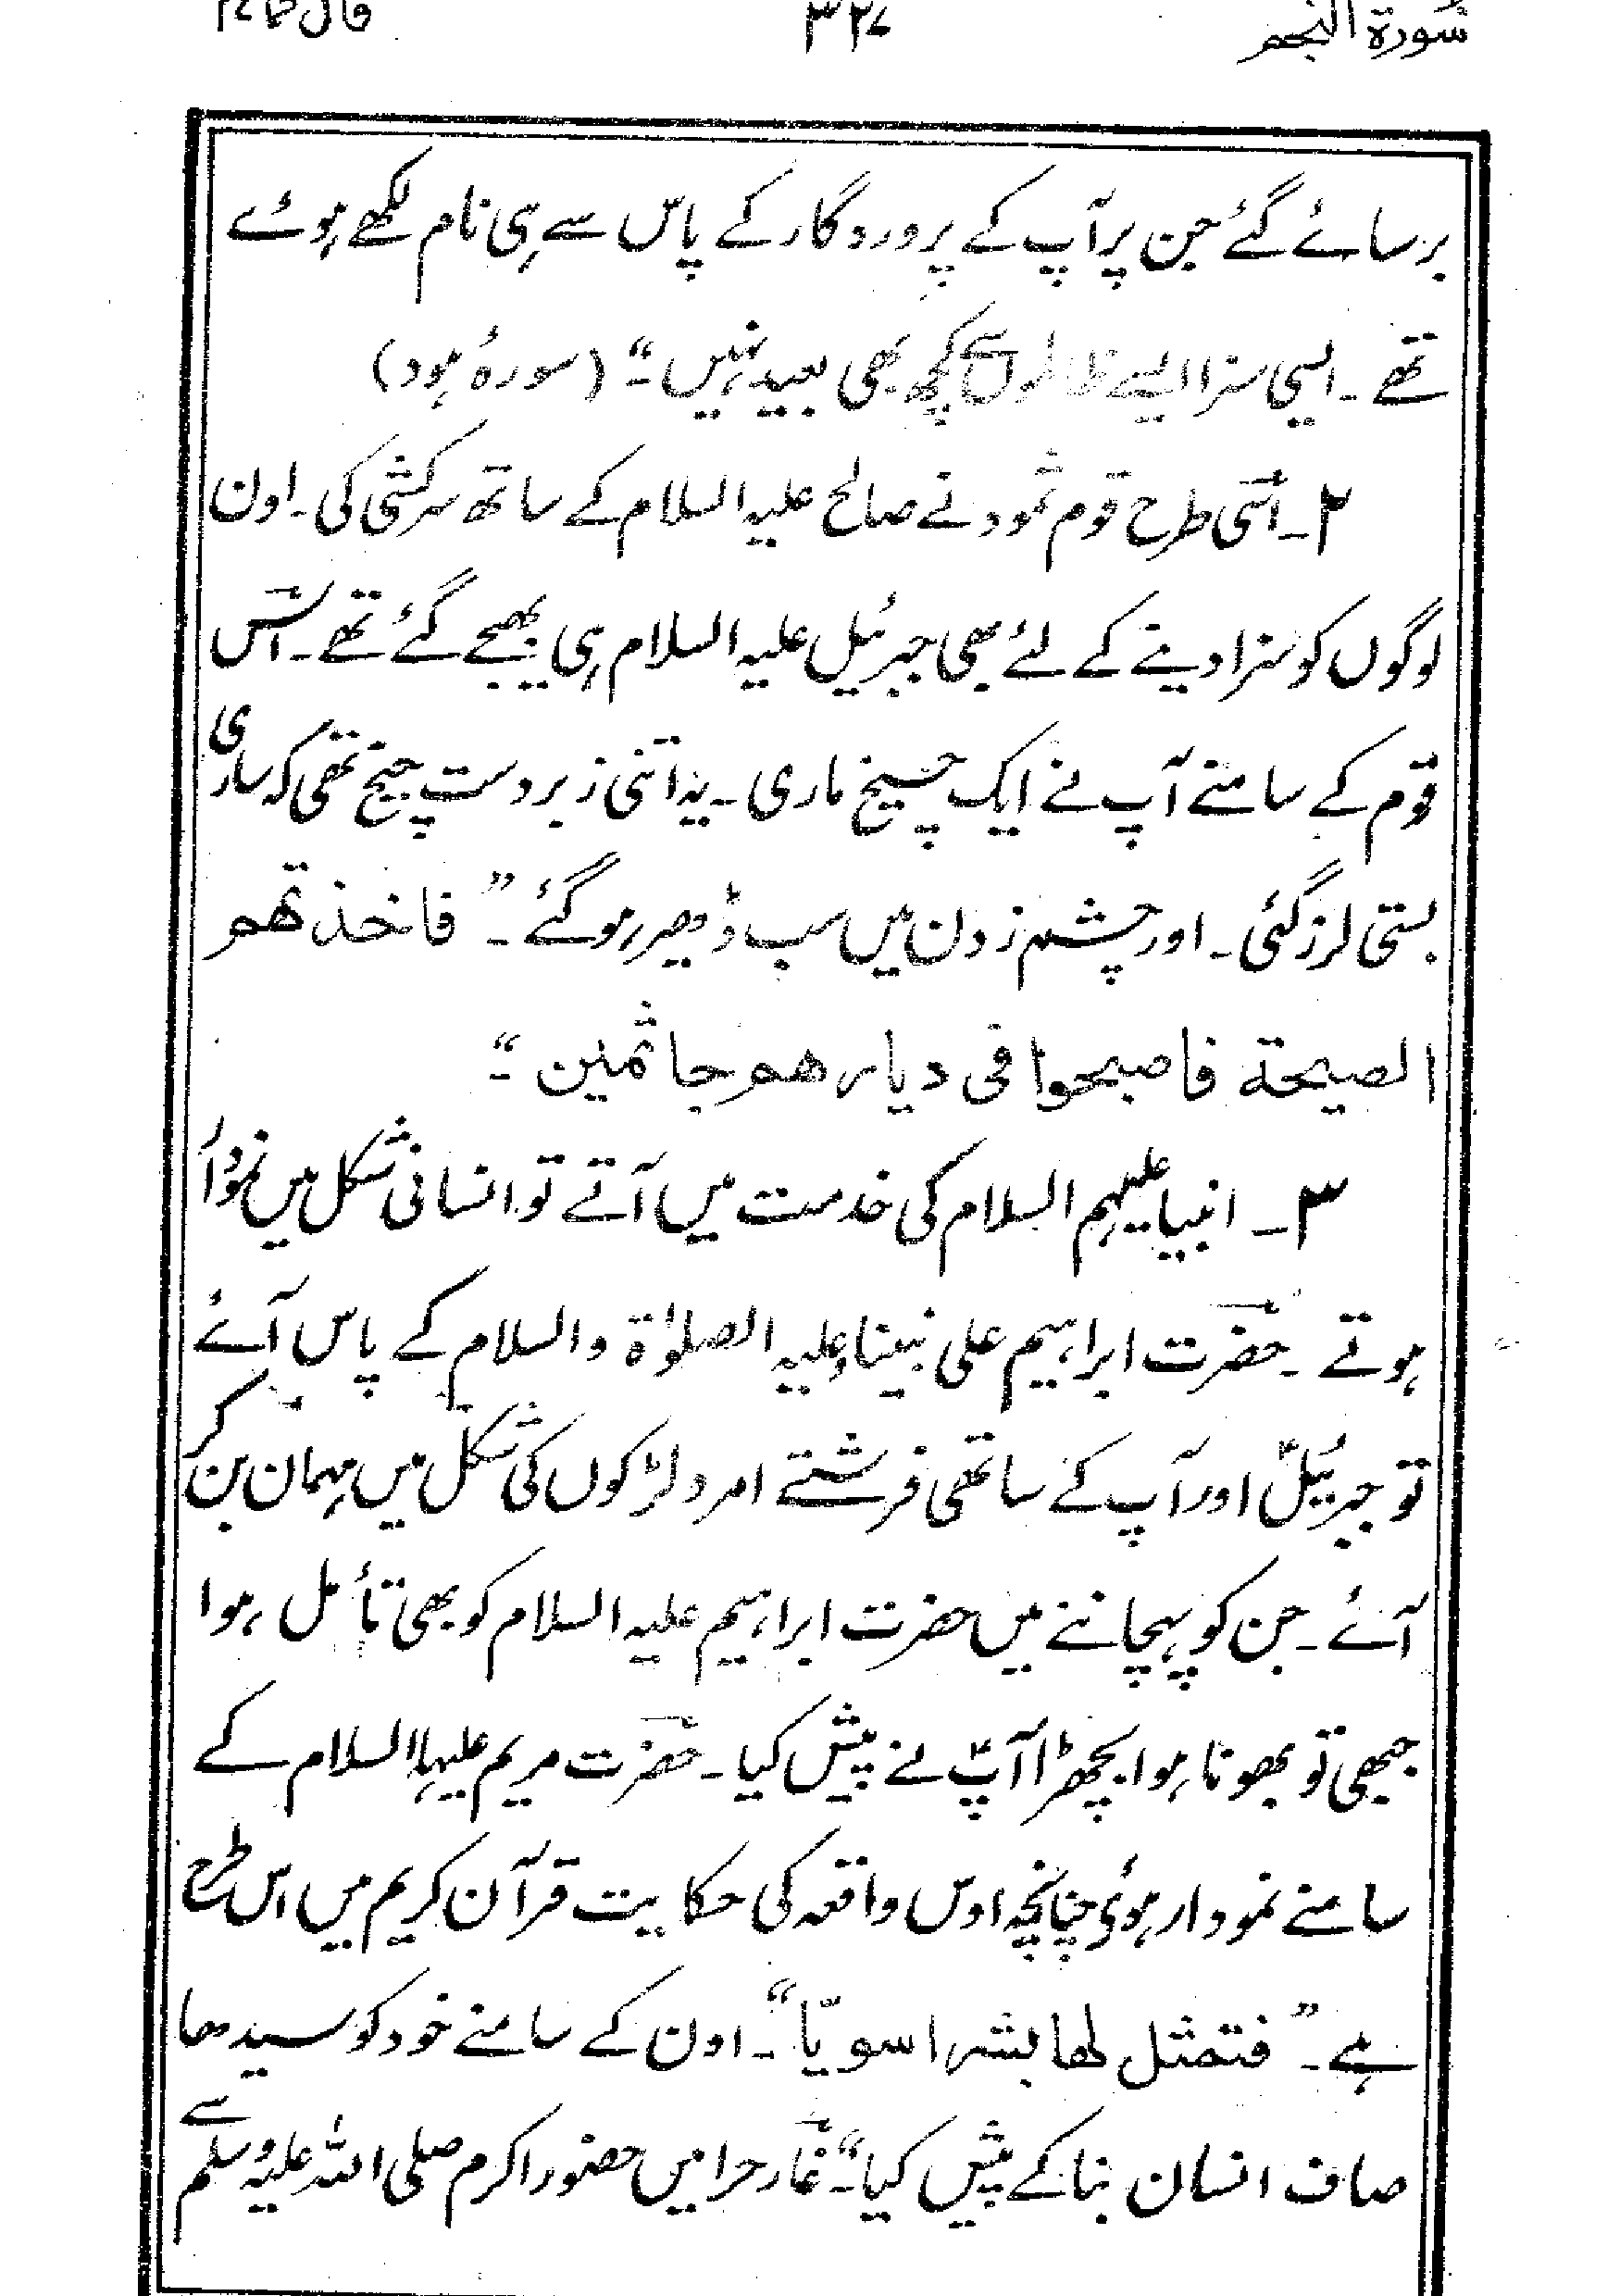 سُورة النجم ۳۲۷ قال فما ۲۷
برسائے گئے جن پر آپ کے پروردگار کے پاس سے ہی نام لکھے ہوئے
تھے۔ ایسی سزا ایسے ظالموں سے کچھ بھی بعید نہیں۔“ (سورۂ ہود)
۲۔ اسی طرح قوم ثمود نے صالح علیہ السلام کے ساتھ سرکشی کی۔ اون
لوگوں کو سزا دینے کے لئے بھی جبرئیل علیہ السلام ہی بھیجے گئے تھے۔ اس
قوم کے سامنے آپ نے ایک چیخ ماری۔ یہ اتنی زبردست چیخ تھی کہ ساری
بستی لرز گئی۔ اور چشم زدن میں سب ڈھیر ہو گئے۔ ”فاخذتھم
الصیحة فاصبحوا فی دیارھم جاثمین۔“
۳۔ انبیا علیہم السلام کی خدمت میں آتے تو انسانی شکل میں نمودار
ہوتے۔ حضرت ابراہیم علی نبینا وعلیہ الصلوٰۃ والسلام کے پاس آئے
تو جبرئیلؑ اور آپ کے ساتھی فرشتے امرد لڑکوں کی شکل میں مہمان بن کر
آئے۔ جن کو پہچاننے میں حضرت ابراہیم علیہ السلام کو بھی تأمل ہوا
جبھی تو بھونا ہوا بچھڑا آپؑ نے پیش کیا۔ حضرت مریم علیہا السلام کے
سامنے نمودار ہوئی چنانچہ اوس واقعہ کی حکایت قرآن کریم میں اس طرح
ہے۔ ”فتمثل لھا بشرا سویّا“۔ اون کے سامنے خود کو سیدھا
صاف انسان بنا کے پیش کیا“۔ غار حرا میں حضور اکرم صلی اللہ علیہ وسلم سے